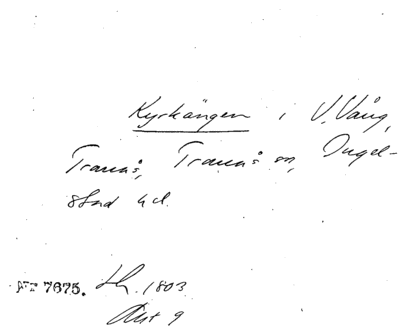 Kyrkängen i V. Vång,
Tranås, Tranås sn, Ingel-
stad hd.
NR 7675. LH. 1803
Akt 9